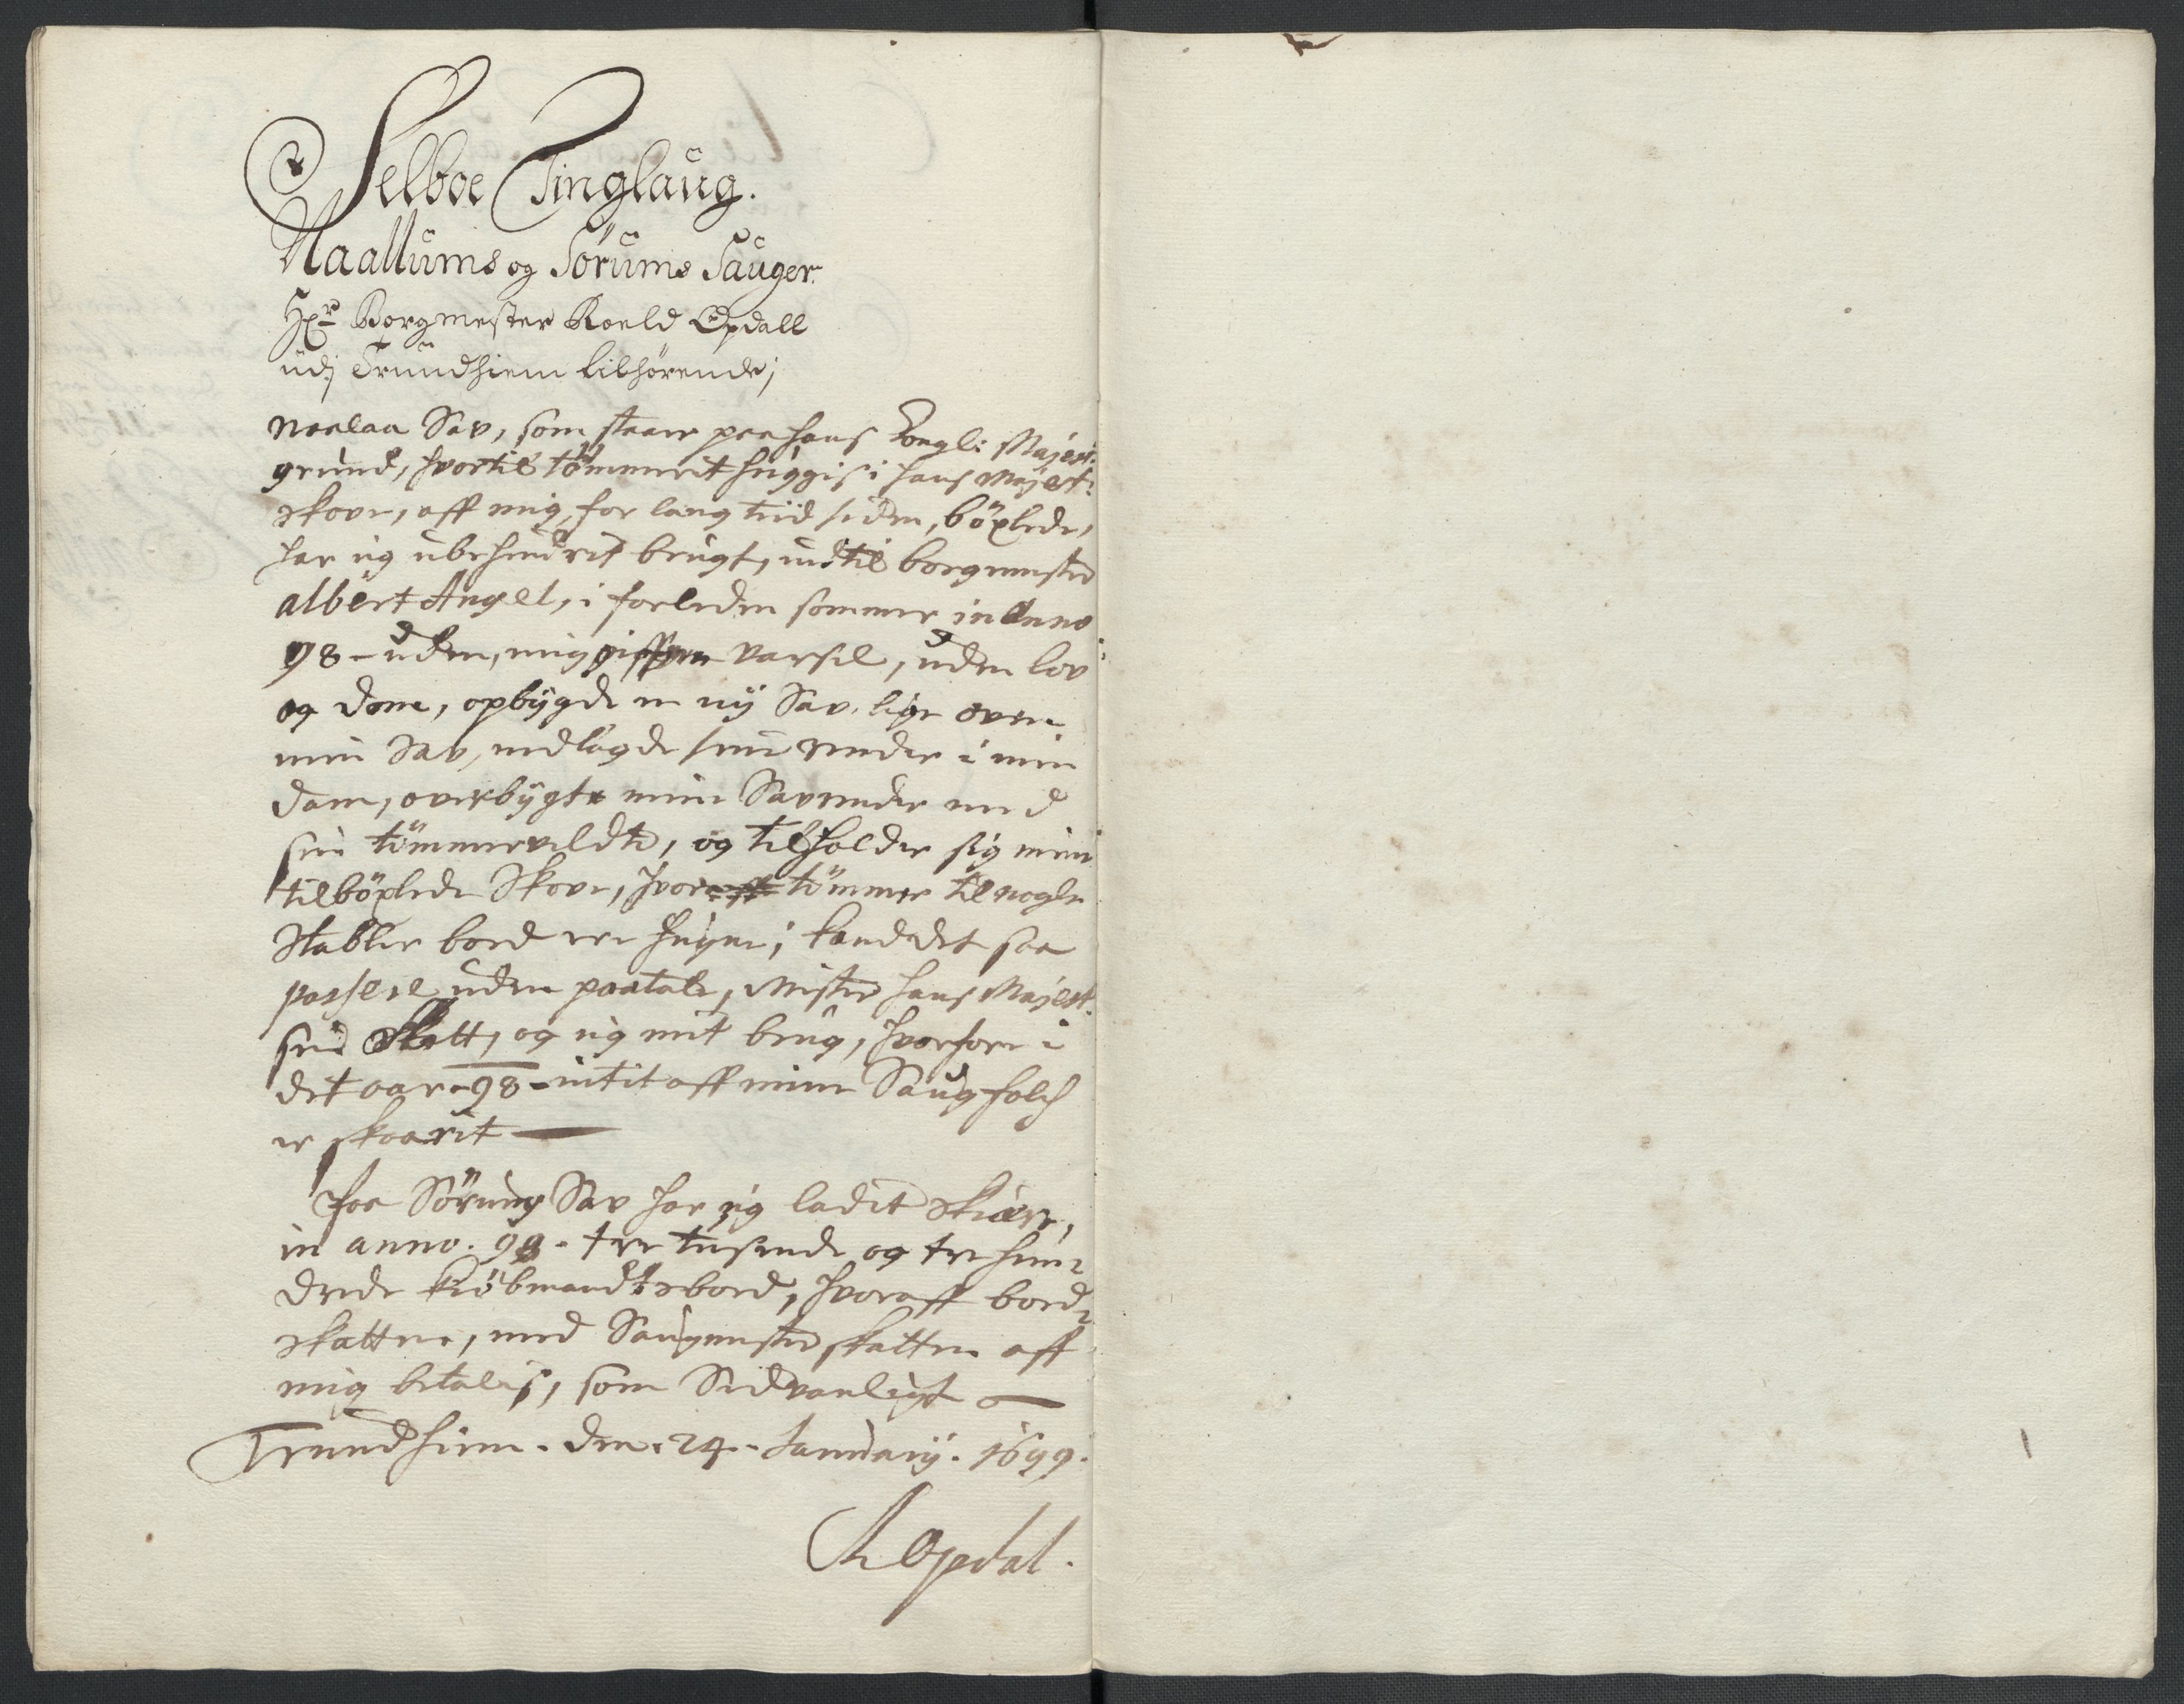 Selboe Tinglaug.
Naallums og Sørums Sauger.
Hr Borgmester Roeld Opdall
udj Trundhiem tilhørende;
Noelaa Sav, som staar paa hans Kongl: Majest:
grund, hvortil tömmerit huggis i hans Majest:
skove, aff mig, for lang tiid siden, böxlede,
har ieg ubehindrit brugt, indtil borgmester
albert Angel, i forleden sommer in Anno
98 - uden, mig giffven varsel, uden lov
og dom, opbygde en ny Sav, lige oven
min Sav, nedlagde sine render i min
dam, overbygte mine Savrender med
sin tömmerveldte, og tilholder sig mine
tilböxlede Skove, hvor aff tömmer til nogle
stabler bord ere hugne; kand det saa
passere uden paatale, Mister hans Majest:
sin Skatt, og ieg mit brug, hvorfore i
det aar - 98 - intit aff mine Saugfolch
er skaarit —
Paa Sörungs Sav har ieg ladit skiære,
in anno. 98 - tre tusende og tre hun-
drede kiöbmandtsbord, hvoraff bord-
skatten, med Saugmester skatten aff
mig betalis, som Sedvanligt —
Trundhiem. den. 24. January. 1699.
R Opdal.